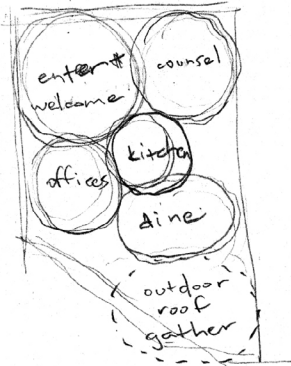 enter +
welcome
counsel
kitchen
offices
dine
outdoor
roof
gather